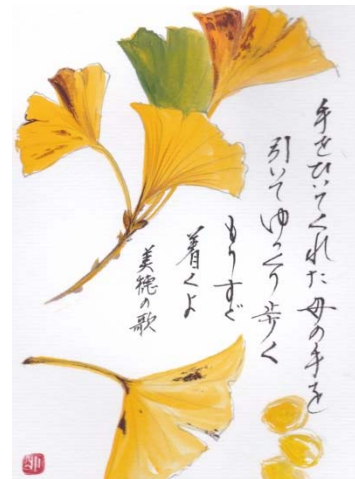 手をひいてくれた母の手を
引いてゆっくり歩く
もうすぐ
着くよ
美穂の歌